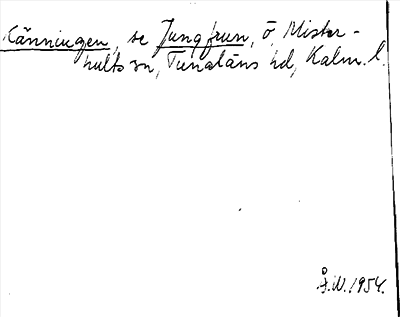 Känningen, se Jungfrun, ö, Mister-
hults sn, Tunaläns hd, Kalm. l.
Å.N. 1954.